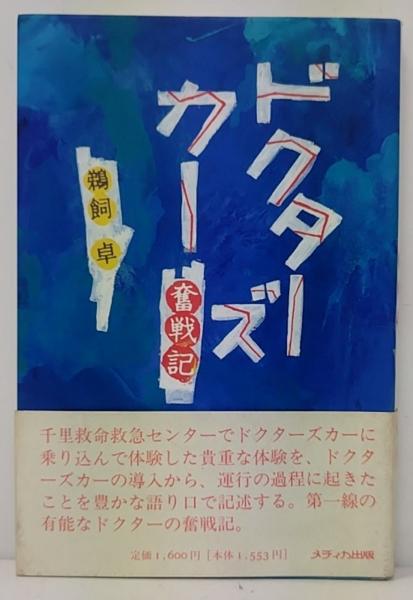 ドクターズ
カー
奮戦記
鵜飼卓
千里救命救急センターでドクターズカーに
乗り込んで体験した貴重な体験を、ドクタ
ーズカーの導入から、運行の過程に起きた
ことを豊かな語り口で記述する。第一線の
有能なドクターの奮戦記。
定価1,600円[本体1,553円]
メディカ出版